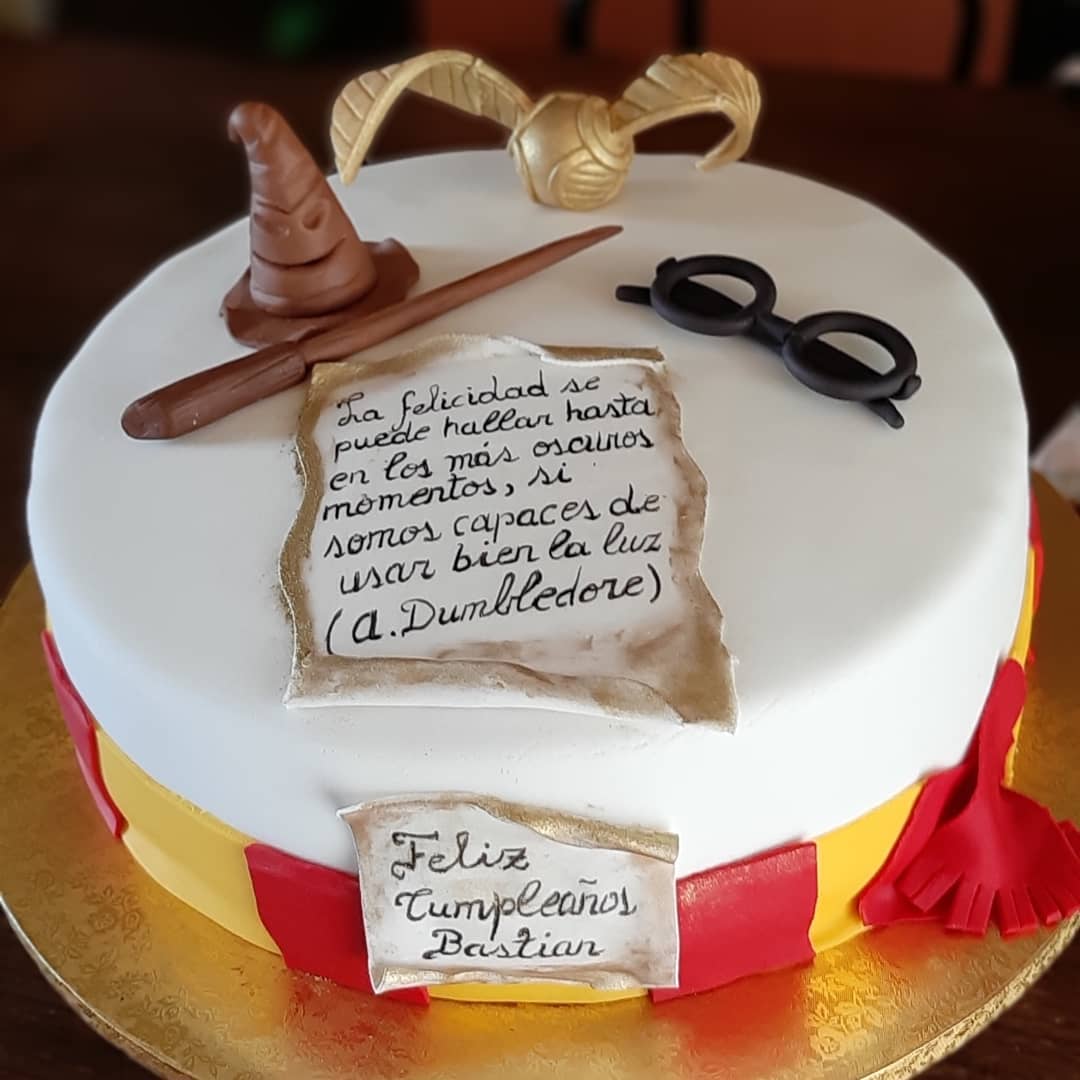 La felicidad se
puede hallar hasta
en los más oscuros
momentos, si
somos capaces de
usar bien la luz
(A. Dumbledore)
Feliz
Cumpleaños
Bastian